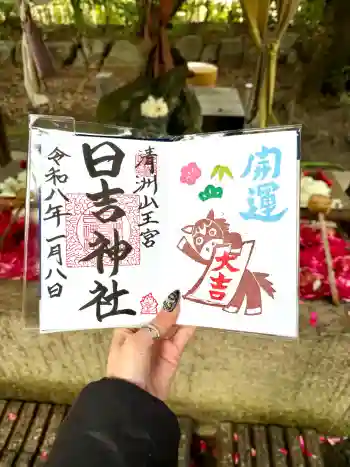 清洲山王宮
日吉神社
令和八年一月八日
開運
大吉